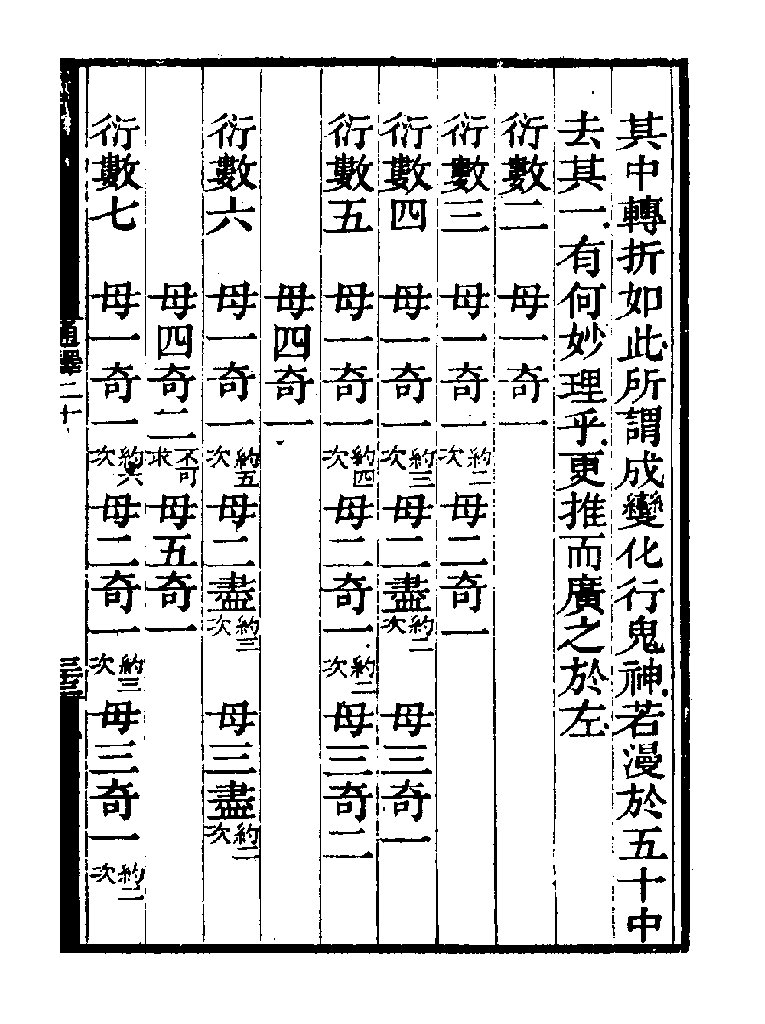 其中轉折如此所謂成變化行鬼神若漫於五十中
去其一有何妙理乎更推而廣之於左
衍數二　母一奇一
衍數三　母一奇一約二次母二奇一
衍數四　母一奇一約三次母二盡約二次母三奇一
衍數五　母一奇一約四次母二奇一約二次母三奇二
母四奇一
衍數六　母一奇一約五次母二盡約三次母三盡約二次
母四奇二不可求母五奇一
衍數七　母一奇一約六次母二奇一約三次母三奇一約二次
通釋二十